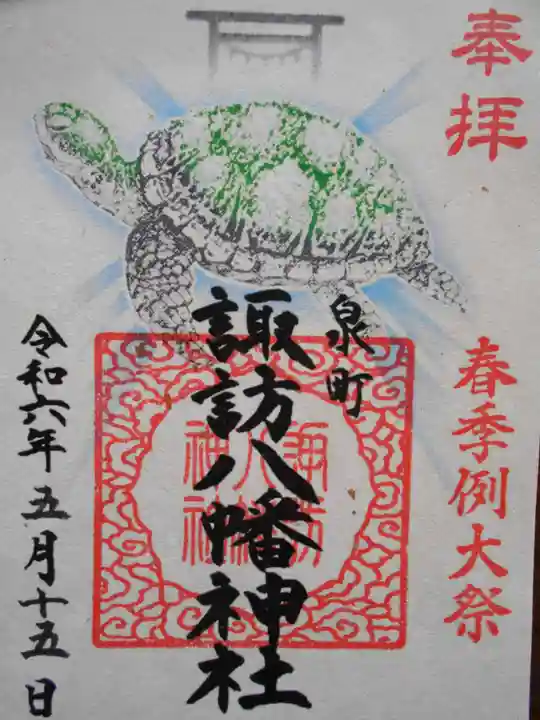 奉拝
春季例大祭
泉町
諏訪八幡神社
諏訪
八幡
神社
令和六年五月十五日